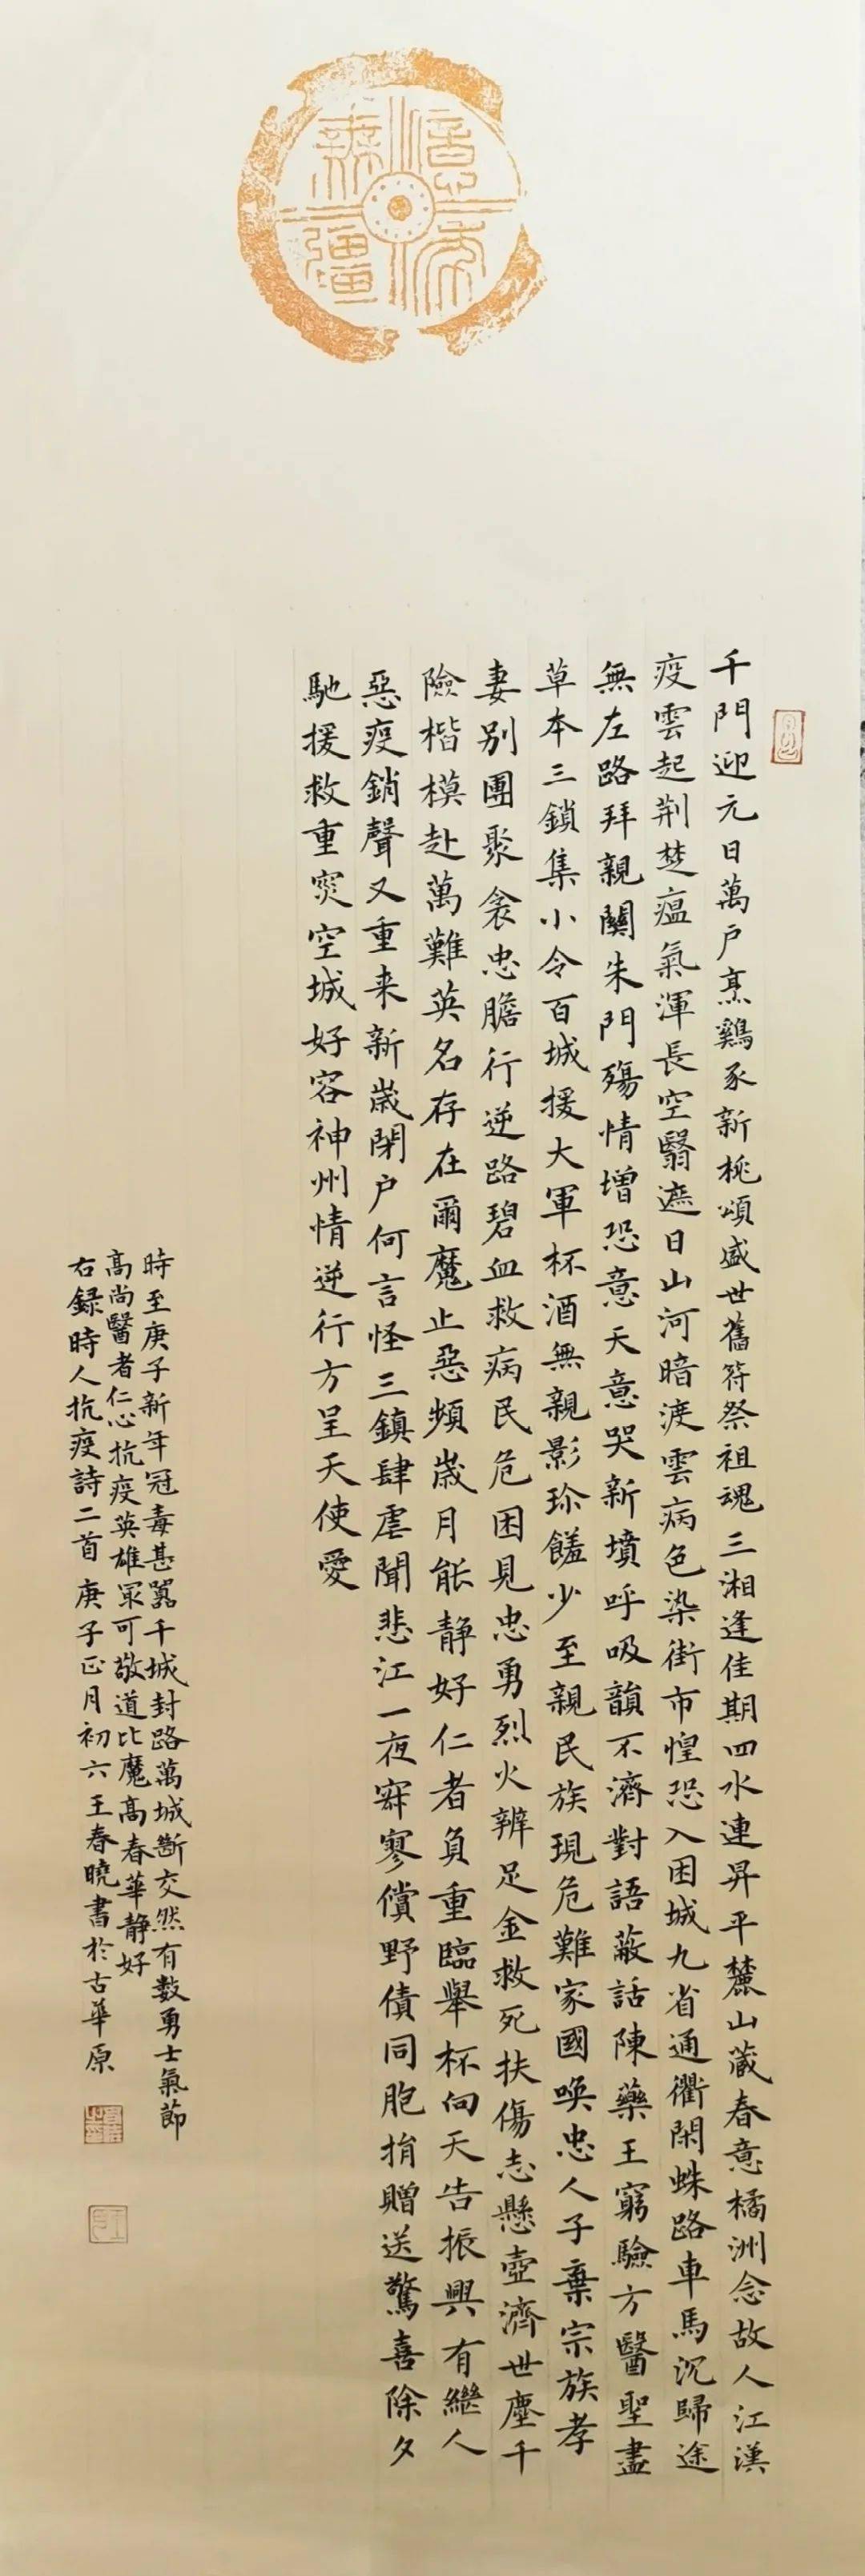 千門迎元日萬户烹鷄豕新桃頌盛世舊符祭祖魂三湘逢佳期四水連昇平麓山藏春意橘洲念故人江漢
疫雲起荆楚瘟氣渾長空翳遮日山河暗渡雲病色染街市惶恐入困城九省通衢閑蛛路車馬沉歸途
無左路拜親關朱門殤情增恐意天意哭新墳呼吸韻不濟對語蔽話陳藥王窮驗方醫聖盡
草本三鎖集小令百城援大軍杯酒無親影珍饈少至親民族現危難家國喚忠人子棄宗族孝
妻别團聚衾忠膽行逆路碧血救病民危困見忠勇烈火辨足金救死扶傷志懸壺濟世塵千
險楷模赴萬難英名存在爾魔止惡頻歲月能静好仁者負重臨舉杯向天告振興有繼人
惡疫銷聲又重来新歲閉户何言怪三鎮肆虐聞悲江一夜寂寥償野債同胞捐贈送驚喜除夕
馳援救重灾空城好容神州情逆行方呈天使愛
時至庚子新年冠毒甚囂千城封路萬城斷交然有數勇士氣節
高尚醫者仁心抗疫英雄冣可敬道比魔高春華静好
右録時人抗疫詩二首庚子正月初六王春曉書於古華原